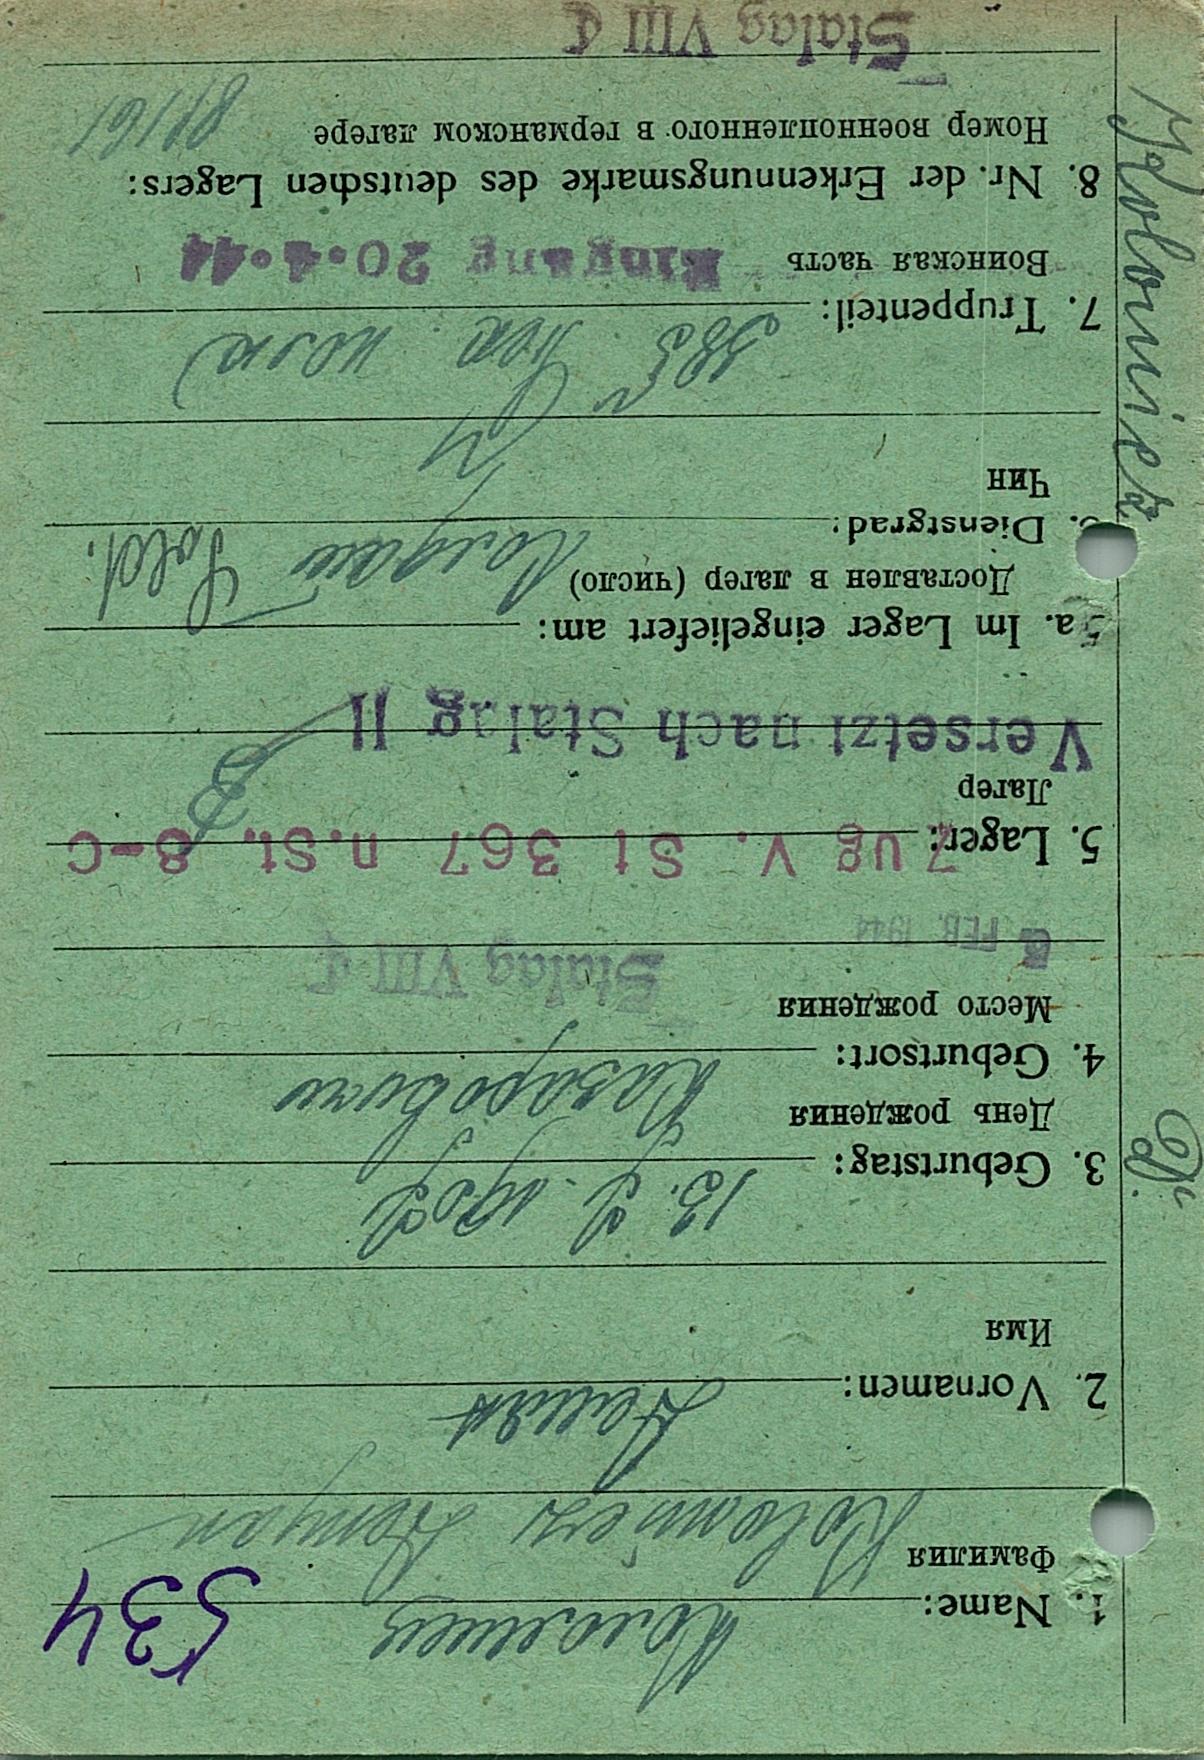 534
1. Name: Коломиец
Фамилия
Kolomiez Demjan
2. Vornamen: Демьян
Имя
3. Geburtstag: 13. 2. 1902
День рождения
4. Geburtsort: Назаровичи
Место рождения
Stalag VIII C
FEB. 1944
5. Lager: Zug v. St 367 n.St. 8-C
Лагер
Versetzt nach Stalag II
5a. Im Lager eingeliefert am:
Доставлен в лагер (число)
Sold.
6. Dienstgrad:
Чин
7. Truppenteil: 385
Воинская часть
Eingang 20.4.44
8. Nr. der Erkennungsmarke des deutschen Lagers:
Номер военнопленного в германском лагере
81161
Stalag VIII C
Kolomiez